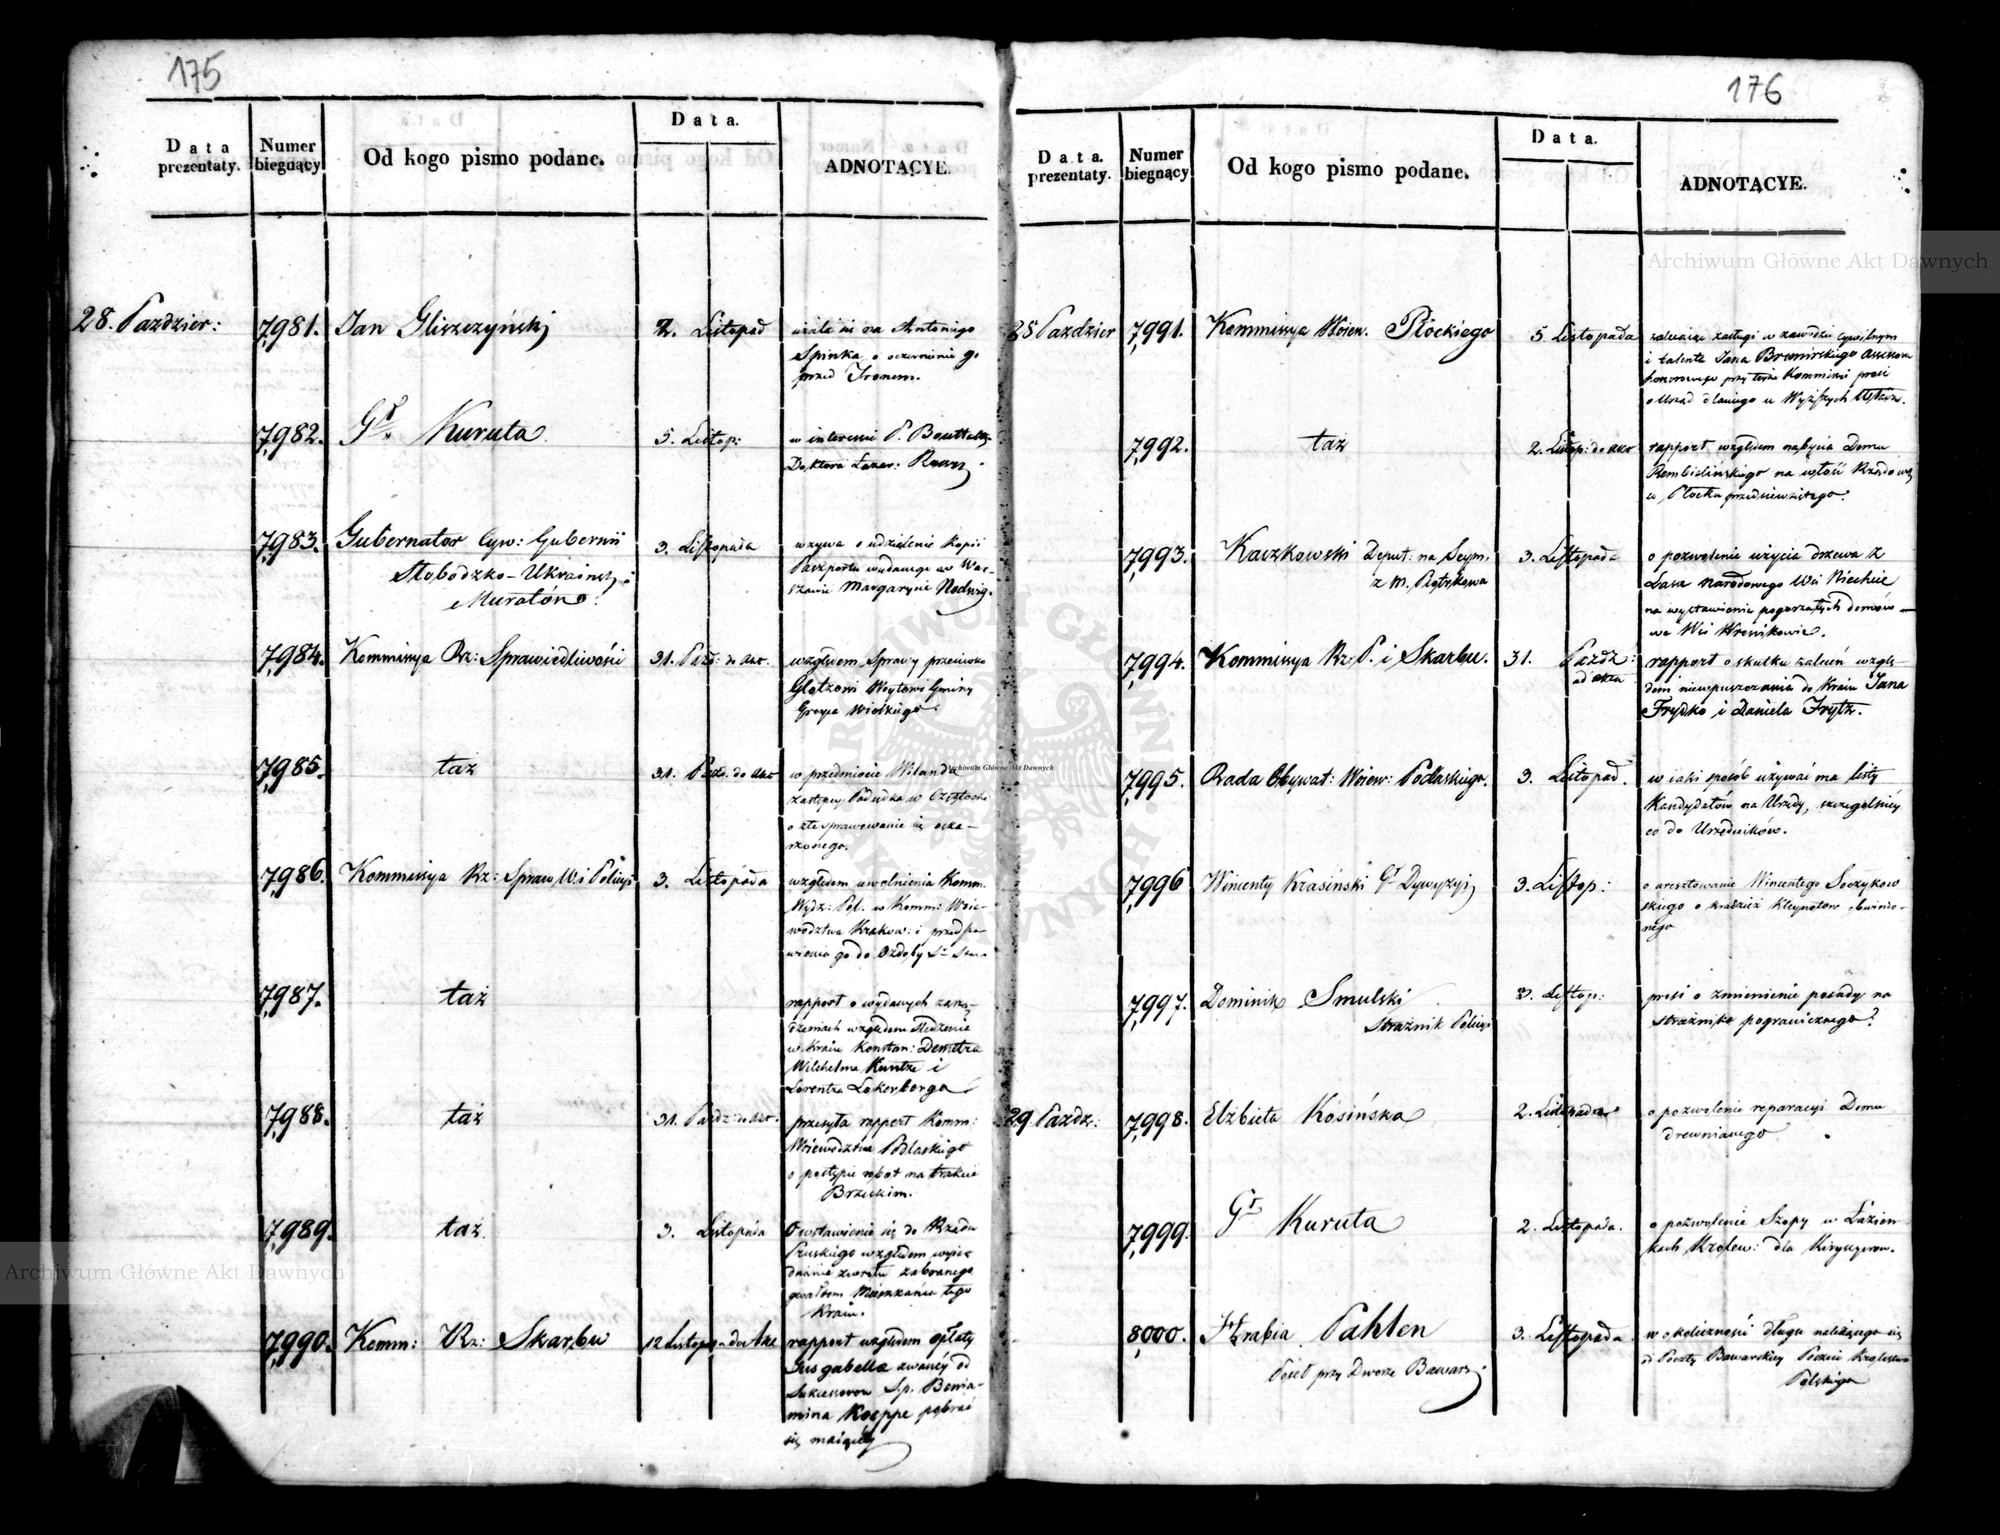 175
Data prezentaty.
Numer biegnący
Od kogo pismo podane.
Data.
ADNOTACYE.
28. Paździer:
7,981.
Jan Gliszczyński
2. Listopad
użala się na Antoniego
Spinka o oczernienie go
przed Tronem.
7,982.
Gł. Kuruta
5. Listop:
w interessie P.
Doktora Lazar:
7,983.
Gubernator Cyw: Gubernii
Słobodzko-Ukraińsk:
Muratów.
3. Listopada
wzywa o udzielenie kopii
Paszportu wydanego w War-
szawie Margarycie Nodwig.
7,984.
Kommissya Rz: Sprawiedliwości
31. Paźd: do akt.
względem Sprawy przeciwko
Glotzowi Woytowi Gminy
7,985.
taż
31. Paźd. do akt
w przedmiocie Wilanda
zastępcy Podsędka w Częstoch:
o złe sprawowanie się oska-
rżonego.
7,986.
Kommissya Rz: Spraw W. i Policyi
3. Listopada
względem uwolnienia Komm.
Wydz: Pol. w Komm: Woie-
wództwa Krakow: i przedsta-
wienia go do Ozdoby Sgo Stan.
7,987.
taż
rapport o wydanych zarzą-
dzeniach względem śledzenia
w Kraiu Konstan: Demetra
Wilchelma Kuntze i
Lorentza Lokerberga
7,988.
taż
31. Paźdz. do akt.
przesyła rapport Komm:
Woiewództwa Podlaskiego
o postępie robot na trakcie
Brzeskim.
7,989.
taż
3. Listopada
O wstawienie się do Rządu
Pruskiego względem wyied-
nania zwrotu zabranego
gwałtem Mieszkańca tego
Kraiu.
7,990.
Komm: Rz: Skarbu
12 Listopada do Akt
rapport względem opłaty
Jus gabellae zwaney od
Sukcessorow Ś.p. Benia-
mina Koeppe pobrać
się maiącey
176
Data. prezentaty.
Numer biegnący
Od kogo pismo podane.
Data.
ADNOTACYE.
28 Paździer
7,991.
Kommissya Woiew. Płockiego
5. Listopada
zalecaiąc zasługi w zawodzie cywilnym
i talenta Jana Bromirskiego Assessora
honorowego przy teyże Kommissyi prosi
o Urząd dla niego w Wyższych
7,992.
taż
2. Listop: do akt
rapport względem nabycia Domu
Rembielińskiego na własność Rządową
w Płocku przedsięwziętego.
7,993.
Kaczkowski Deput: na Seym.
z M. Piotrkowa
3. Listopada
o pozwolenie użycia drzewa z
Lasu Narodowego Wsi Niechcic
na wystawienie pogorzałych domów
we Wsi Woźnikowie.
7,994.
Kommissya Rz. P. i Skarbu.
31. Paźdz:
ad acta
rapport o skutku zaleceń wzglę-
dem niewpuszczania do Kraiu Jana
Frydko i Daniela Frytz.
7,995.
Rada Obywat: Woiew: Podlaskiego.
3. Listopad.
w iaki sposób używać ma listy
Kandydatów na Urzędy, szczególniey
co do Urzędników.
7,996
Wincenty Krasiński Gł Dywyzyi
3. Listop:
o aresztowanie Wincentego Soczykow
skiego o kradzież kleynotow obwinio-
nego
7,997.
Dominik Smulski
Strażnik Policyi
3. Listop:
prosi o zmienienie posady na
strażnika pogranicznego?
29 Paźdz:
7,998.
Elżbieta Kosińska
2. Listopada
o pozwolenie reparacyi Domu
drewnianego.
7,999.
Gł Kuruta
2. Listopada.
o pozwolenie Szopy w Łazien-
kach Królew: dla Kirysyerow.
8,000.
Hrabia Pahlen
Poseł przy Dworze Bawars:
3. Listopada.
w okoliczności długu należącego się
od Poczty Bawarskiey Poczcie Królestwa
Polskiego
Archiwum Główne Akt Dawnych
Archiwum Główne Akt Dawnych
Archiwum Główne Akt Dawnych
ARCHIWUM GŁÓWNE AKT DAWNYCH